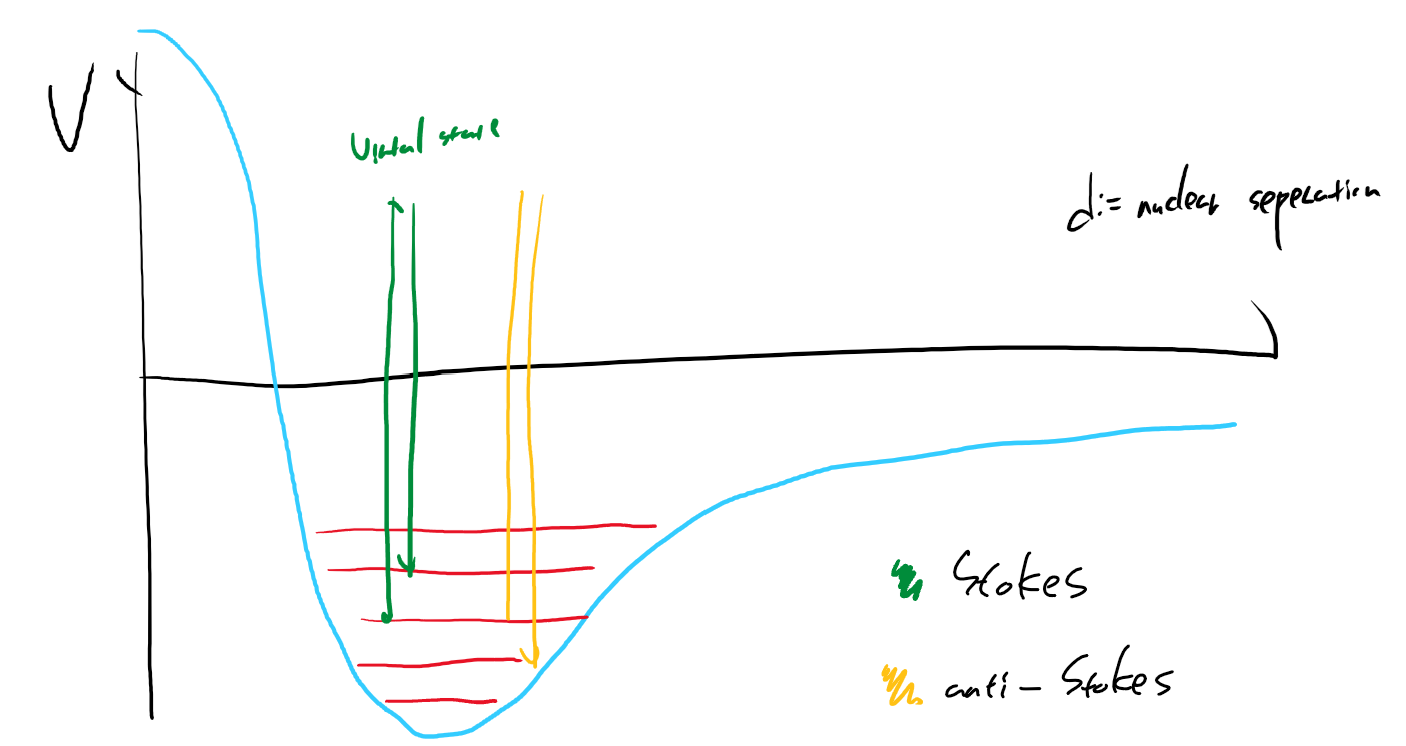 V
Virtual state
d:= nuclear seperation
Stokes
anti-Stokes